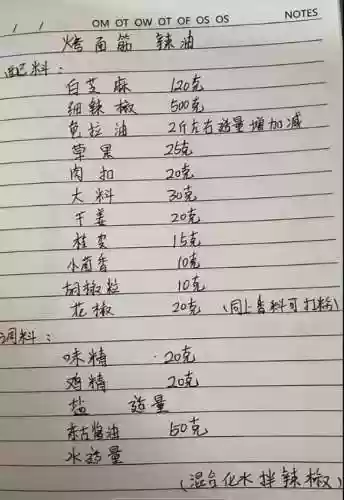 / / OM OT OW OT OF OS OS NOTES
烤面筋 辣油
配料:
白芝麻 120克
细辣椒 500克
色拉油 2斤左右适量增加减
草果 25克
肉扣 20克
大料 30克
干姜 20克
桂皮 15克
小茴香 10克
胡椒粒 10克
花椒 20克 (同上香料可打粉)
调料:
味精 20克
鸡精 20克
盐 适量
酱油 50克
水适量
(混合化水拌辣椒)